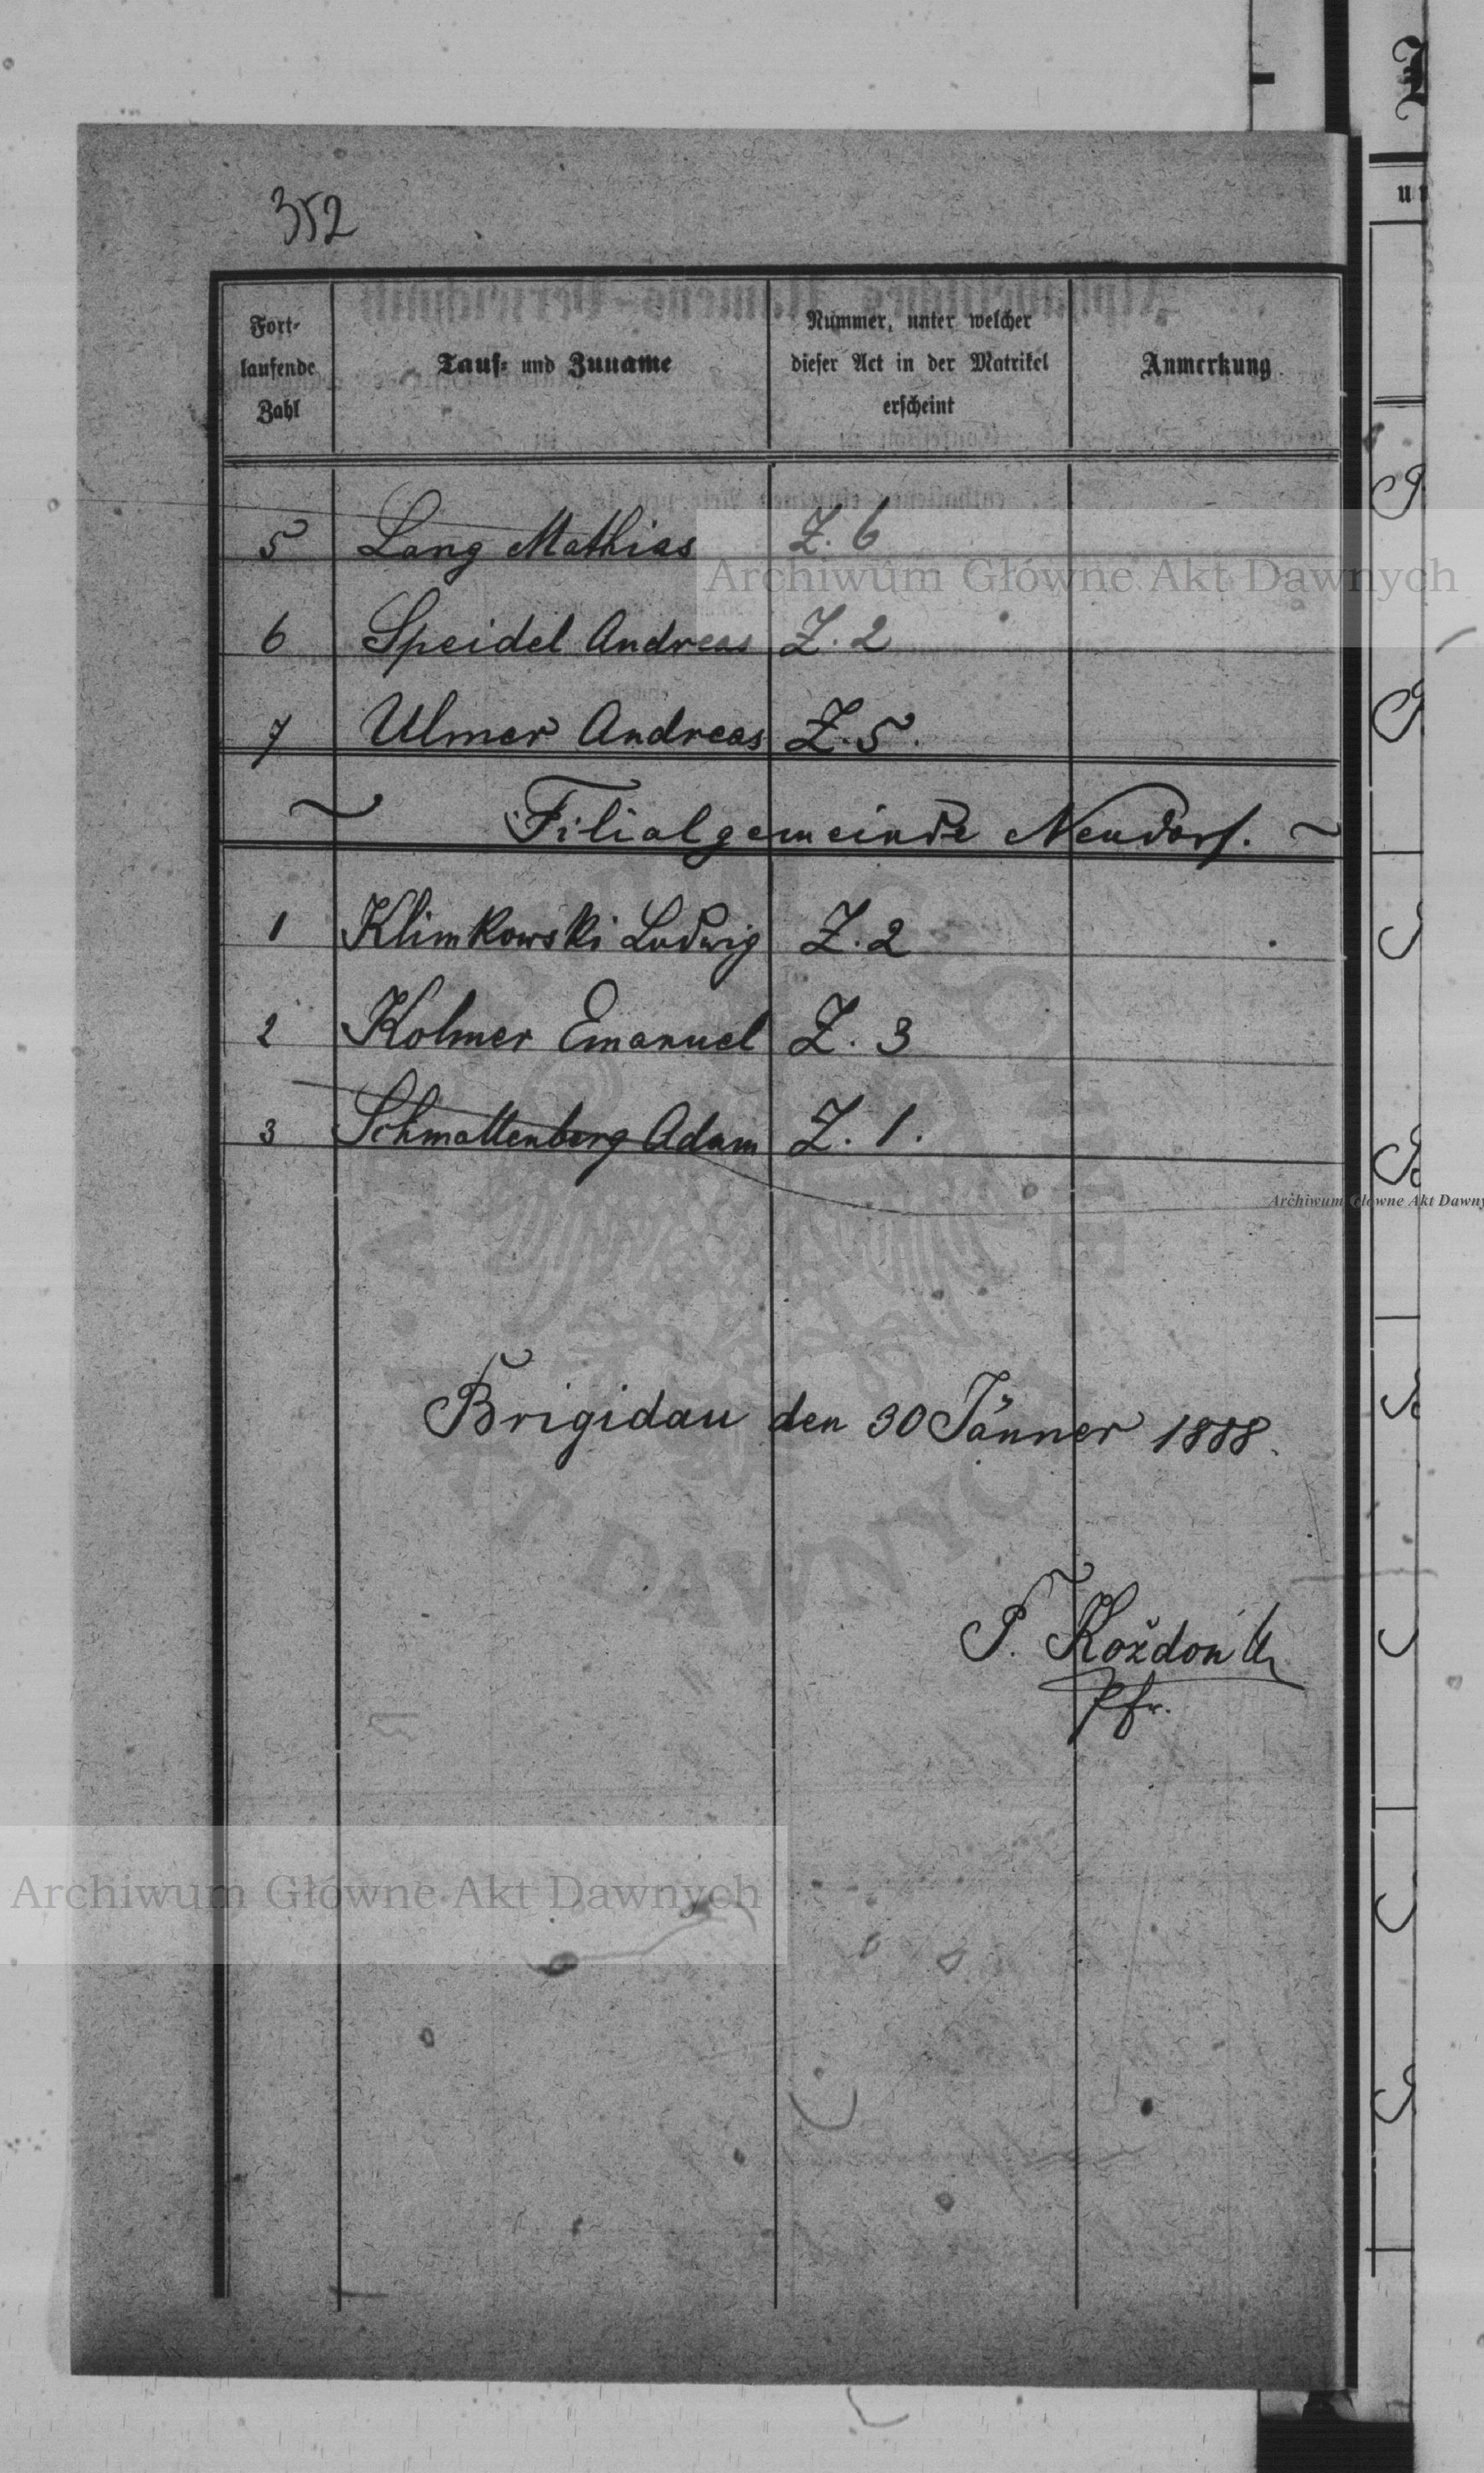 352
Fort-
laufende
Zahl
Tauf- und Zuname
Nummer, unter welcher
dieser Act in der Matrikel
erscheint
Anmerkung
5 Lang Mathias Z. 6
6 Speidel Andreas Z. 2
7 Ulmer Andreas Z. 5.
~ Filialgemeinde Neudorf. ~
1 Klimkowski Ludwig Z. 2
2 Kolmer Emanuel Z. 3
3 Schmattenberg Adam Z. 1.
Brigidau den 30 Jänner 1888.
Koždoń
Pfr.
Archiwum Główne Akt Dawnych
Archiwum Główne Akt Dawny
Archiwum Główne Akt Dawnych